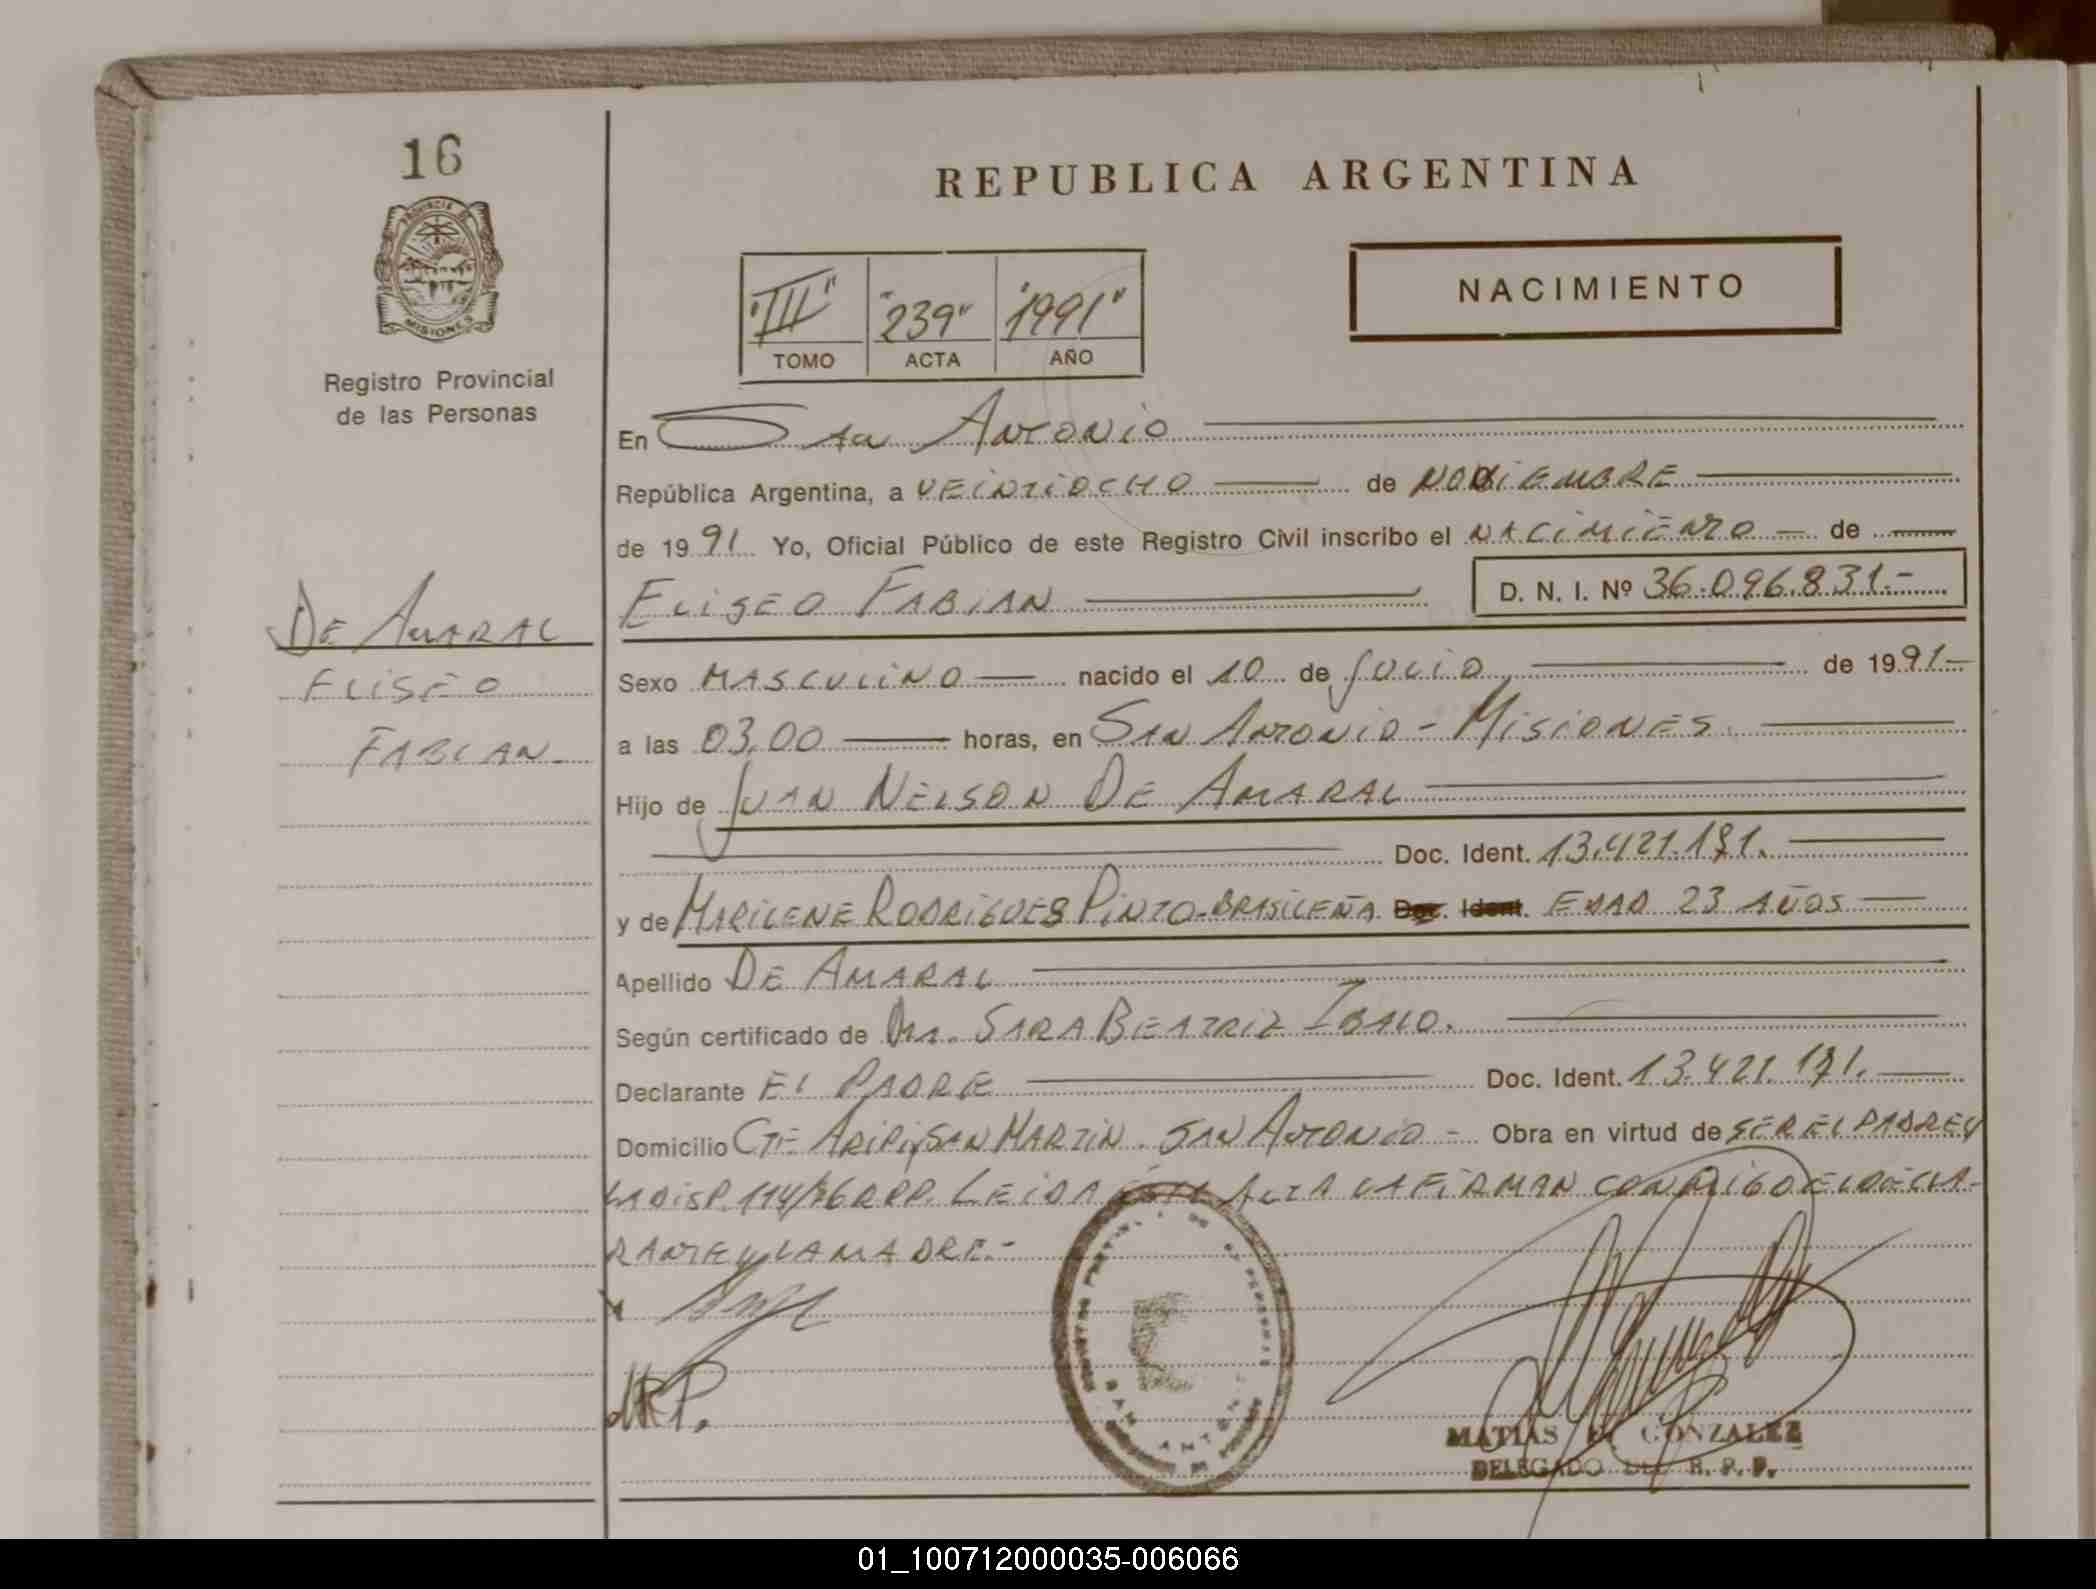 16
PROVINCIA DE
MISIONES
Registro Provincial
de las Personas
DE AMARAL
ELISEO
FABIAN.-
REPUBLICA ARGENTINA
NACIMIENTO
"III" "239" "1991"
TOMO ACTA AÑO
En San Antonio
República Argentina, a VEINTIOCHO de NOVIEMBRE
de 1991 Yo, Oficial Público de este Registro Civil inscribo el NACIMIENTO de
ELISEO FABIAN D. N. I. Nº 36.096.831.-
Sexo MASCULINO nacido el 10 de JULIO de 1991-
a las 03,00 horas, en SAN ANTONIO - MISIONES
Hijo de JUAN NELSON DE AMARAL
Doc. Ident. 13.421.191.
y de MARILENE RODRIGUES PINTO-BRASILEÑA Doc. Ident. EDAD 23 AÑOS
Apellido DE AMARAL
Según certificado de Dra. SARA BEATRIZ
Declarante EL PADRE Doc. Ident. 13.421.191.
Domicilio CTE ARIPI, SAN MARTIN. SAN ANTONIO - Obra en virtud de SER EL PADRE Y
LA DISP. 114/86 RPP. LEIDA ESTE ACTA LA FIRMAN CONMIGO EL DECLA-
RANTE Y LA MADRE.-
MRP.
SAN ANTONIO
MATIAS GONZALEZ
DELEGADO DEL R. P. P.
01_100712000035-006066